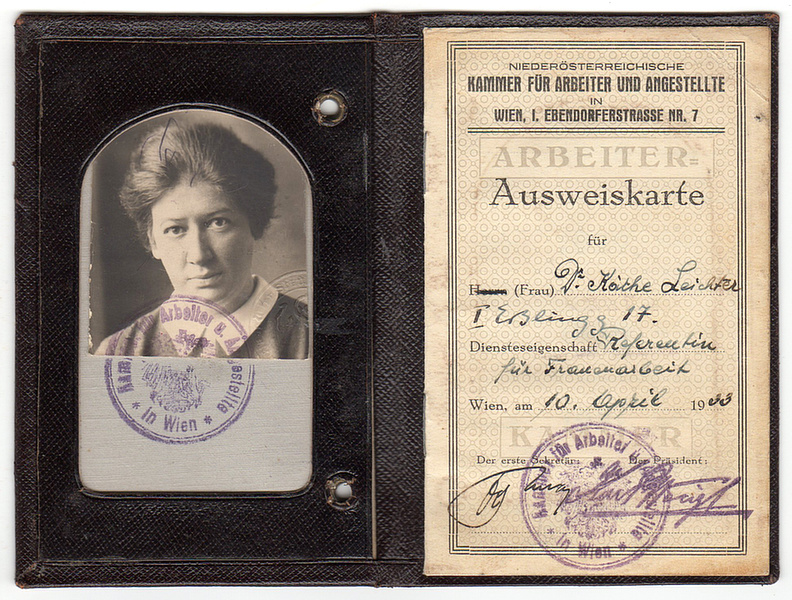 NIEDERÖSTERREICHISCHE
KAMMER FÜR ARBEITER UND ANGESTELLTE
IN
WIEN, I. EBENDORFERSTRASSE NR. 7
ARBEITER=
Ausweiskarte
für
Herrn (Frau) Dr. Käthe Leichter
I Eßlingg 17.
Diensteseigenschaft Referentin
für Frauenarbeit
Wien, am 10. April 1933
KAMMER
Der erste Sekretär: Der Präsident:
Kammer für Arbeiter u. Angestellte
* in Wien *
Kammer für Arbeiter u. Angestellte
* in Wien *